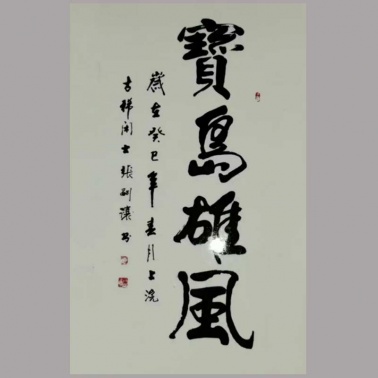 寶島雄風
歲在癸巳年春月上浣
古稀闲士張